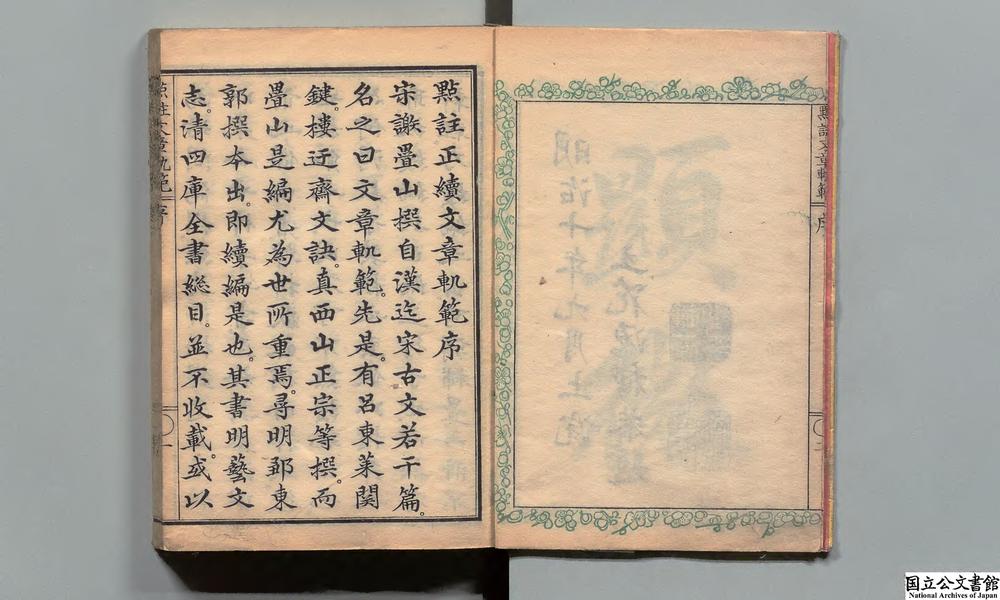 點註文章軌範
序
明治十年九月上浣
點註正續文章軌範序
宋謝疊山撰自漢迄宋古文若干篇。
名之曰文章軌範。先是。有呂東萊関
鍵。樓迂齋文訣。真西山正宗等撰。而
疊山是編尤為世所重焉。尋明鄒東
郭撰本出。即續編是也。其書明藝文
志。清四庫全書総目。並不收載。或以
序
一
国立公文書館
National Archives of Japan